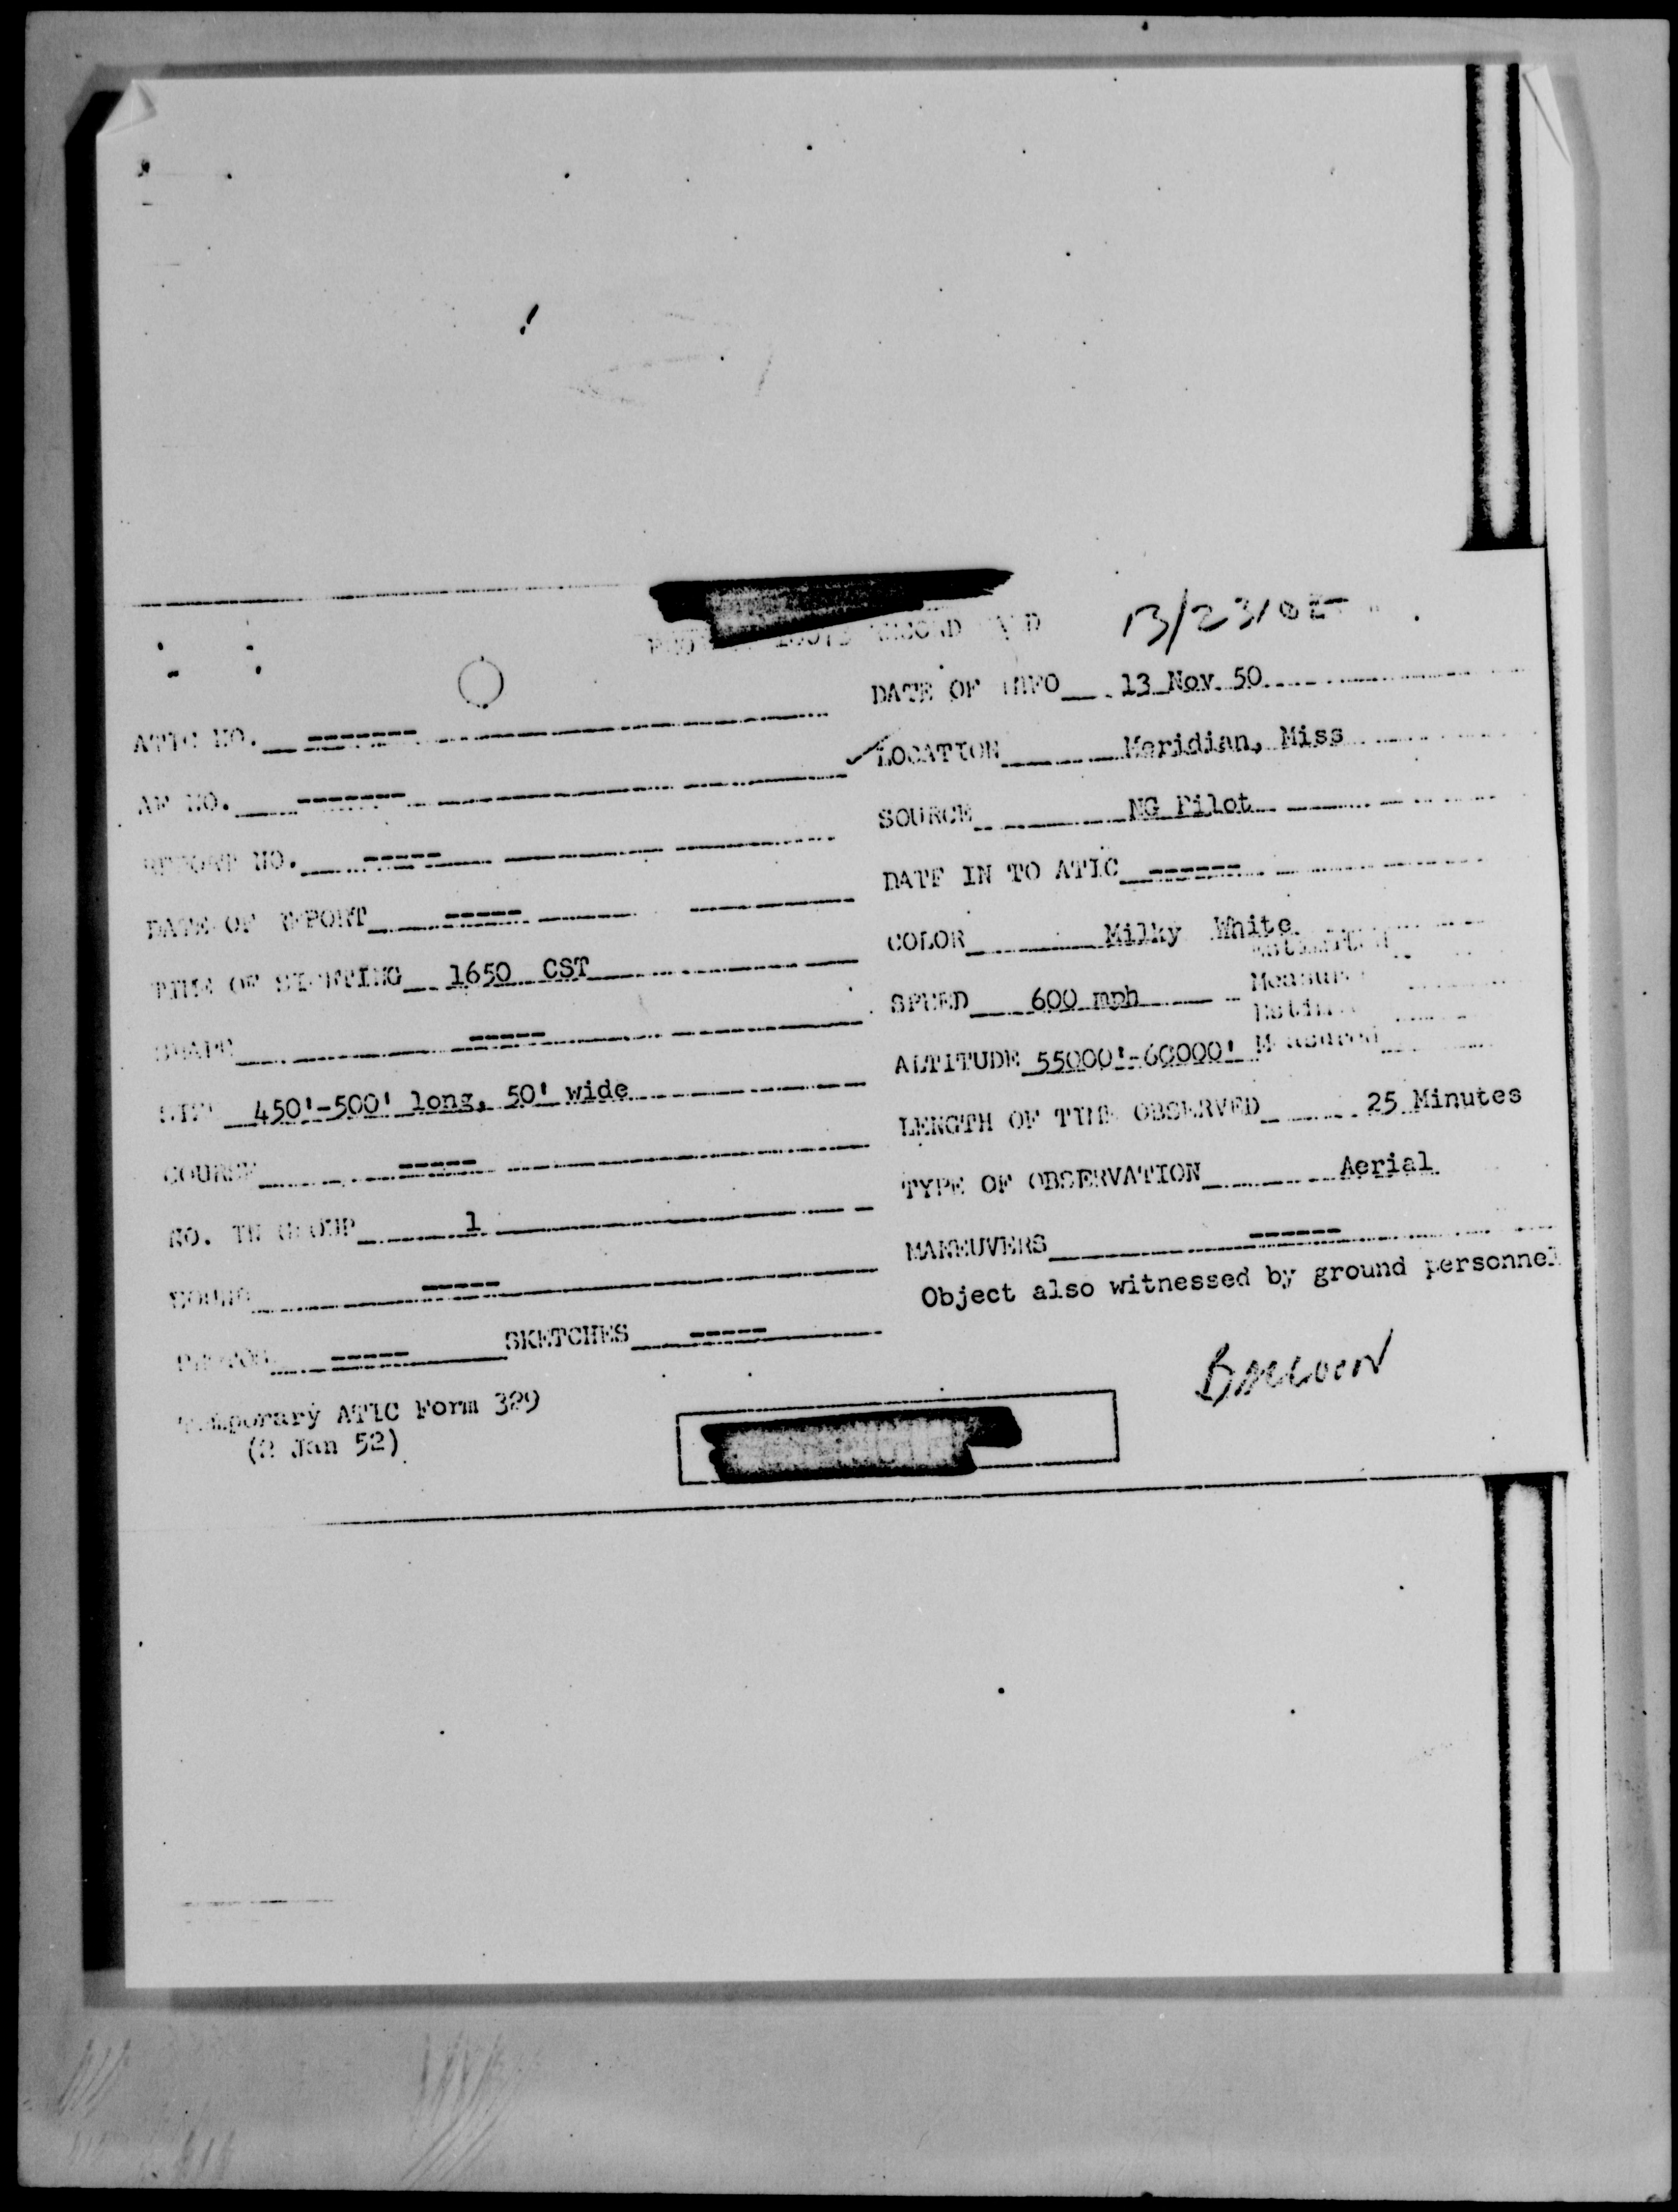 13/2310Z
DATE OF INFO 13 Nov 50
ATIC NO. -------
LOCATION Meridian, Miss
AF NO. -------
SOURCE NG Pilot
REPORT NO. -----
DATE IN TO ATIC ------
DATE OF REPORT -----
COLOR Milky White
TIME OF SIGHTING 1650 CST
Estimated
SPEED 600 mph
Measured
SHAPE -----
ALTITUDE 55000'-60000' Measured
SIZE 450'-500' long, 50' wide
LENGTH OF TIME OBSERVED 25 Minutes
COURSE -----
TYPE OF OBSERVATION Aerial
NO. IN GROUP 1
MANEUVERS ------
SOUND -----
Object also witnessed by ground personnel
SKETCHES -----
Temporary ATIC Form 329
(2 Jan 52)